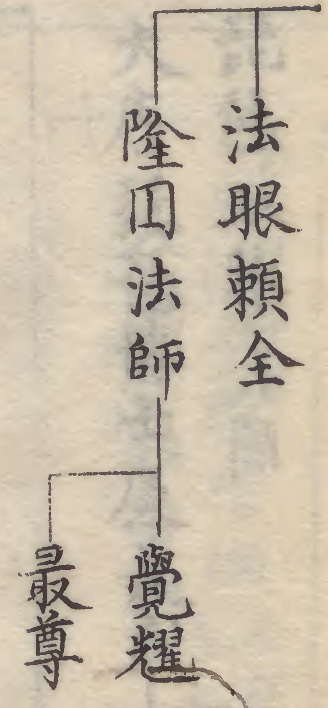 法眼頼全
隆囙法師
覺耀
最尊